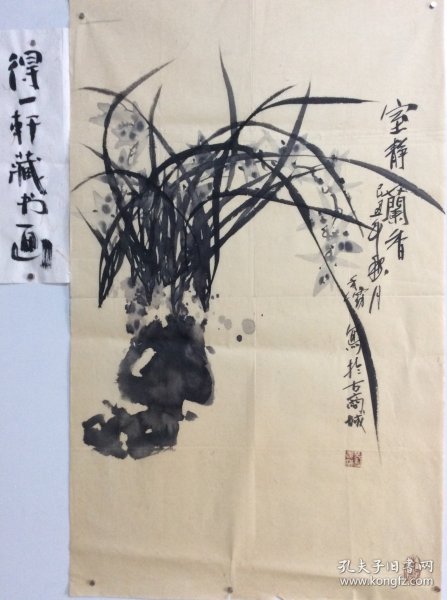 得一轩藏书画
室静蘭香
己丑年秋月
寫於古商城
孔夫子旧书网
www.kongfz.com